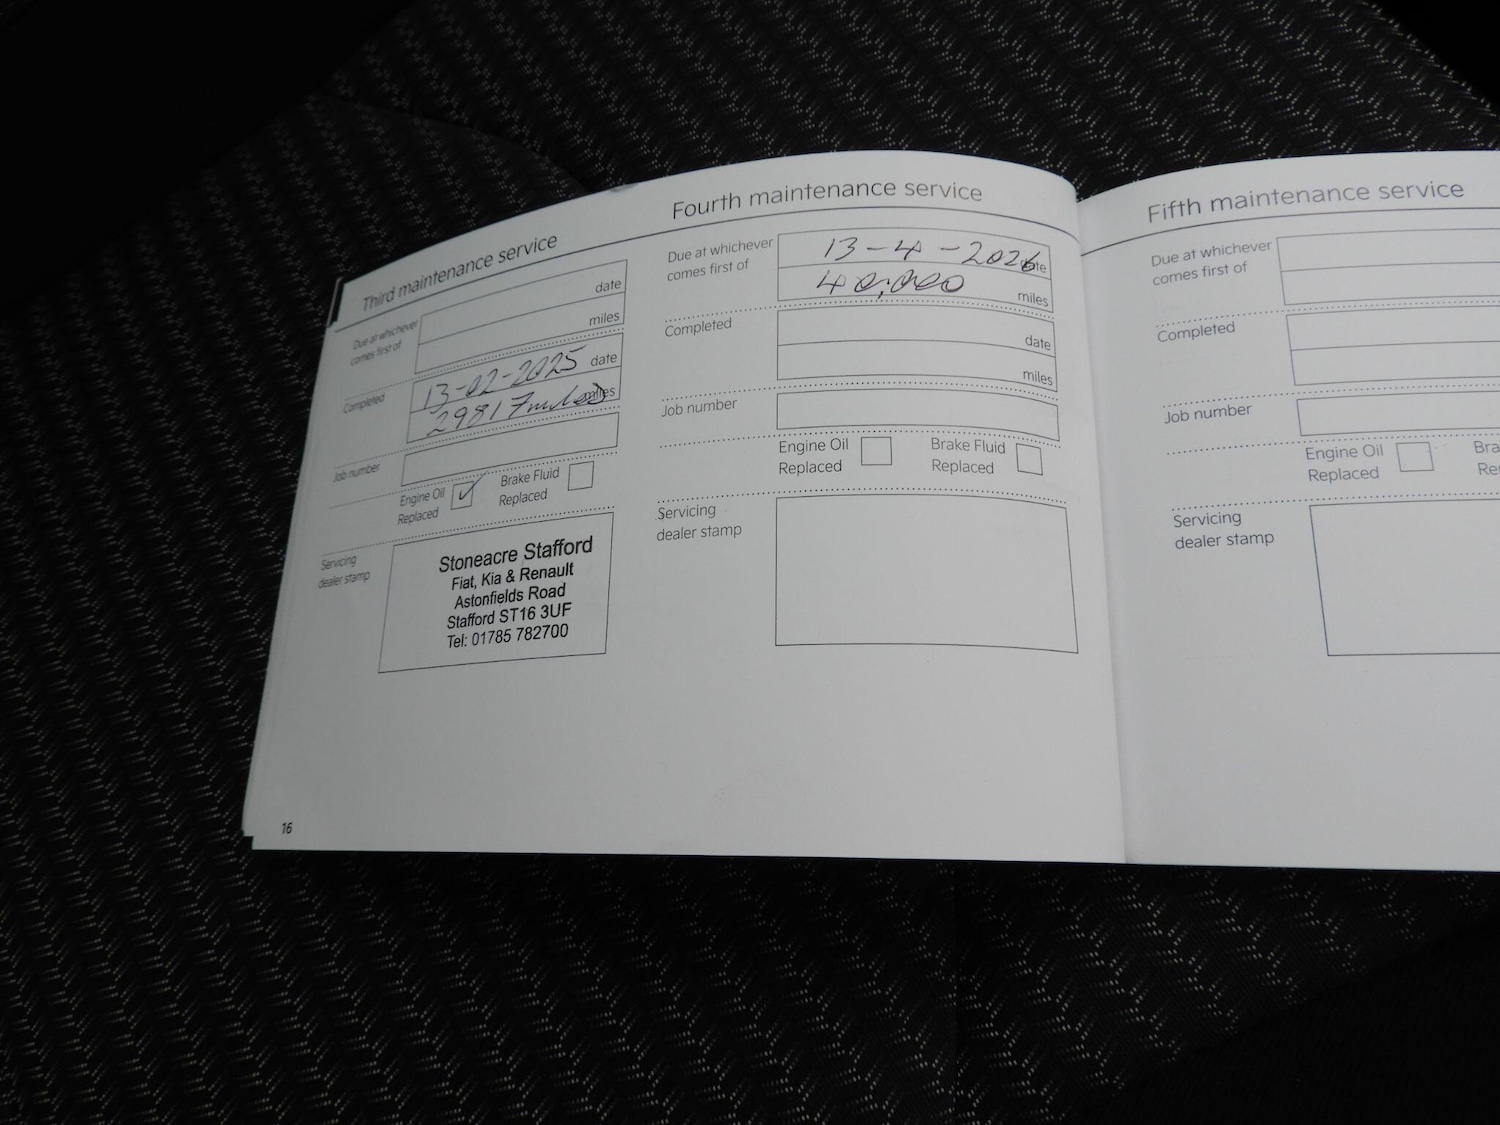 Third maintenance service
Due at whichever
comes first of
date
miles
Completed
13-02-2025 date
29817 miles miles
Job number
Engine Oil
Replaced
Brake Fluid
Replaced
Servicing
dealer stamp
Stoneacre Stafford
Fiat, Kia & Renault
Astonfields Road
Stafford ST16 3UF
Tel: 01785 782700
16
Fourth maintenance service
Due at whichever
comes first of
13-4-2026 date
40,000 miles
Completed
date
miles
Job number
Engine Oil
Replaced
Brake Fluid
Replaced
Servicing
dealer stamp
Fifth maintenance service
Due at whichever
comes first of
Completed
Job number
Engine Oil
Replaced
Bra
Re
Servicing
dealer stamp